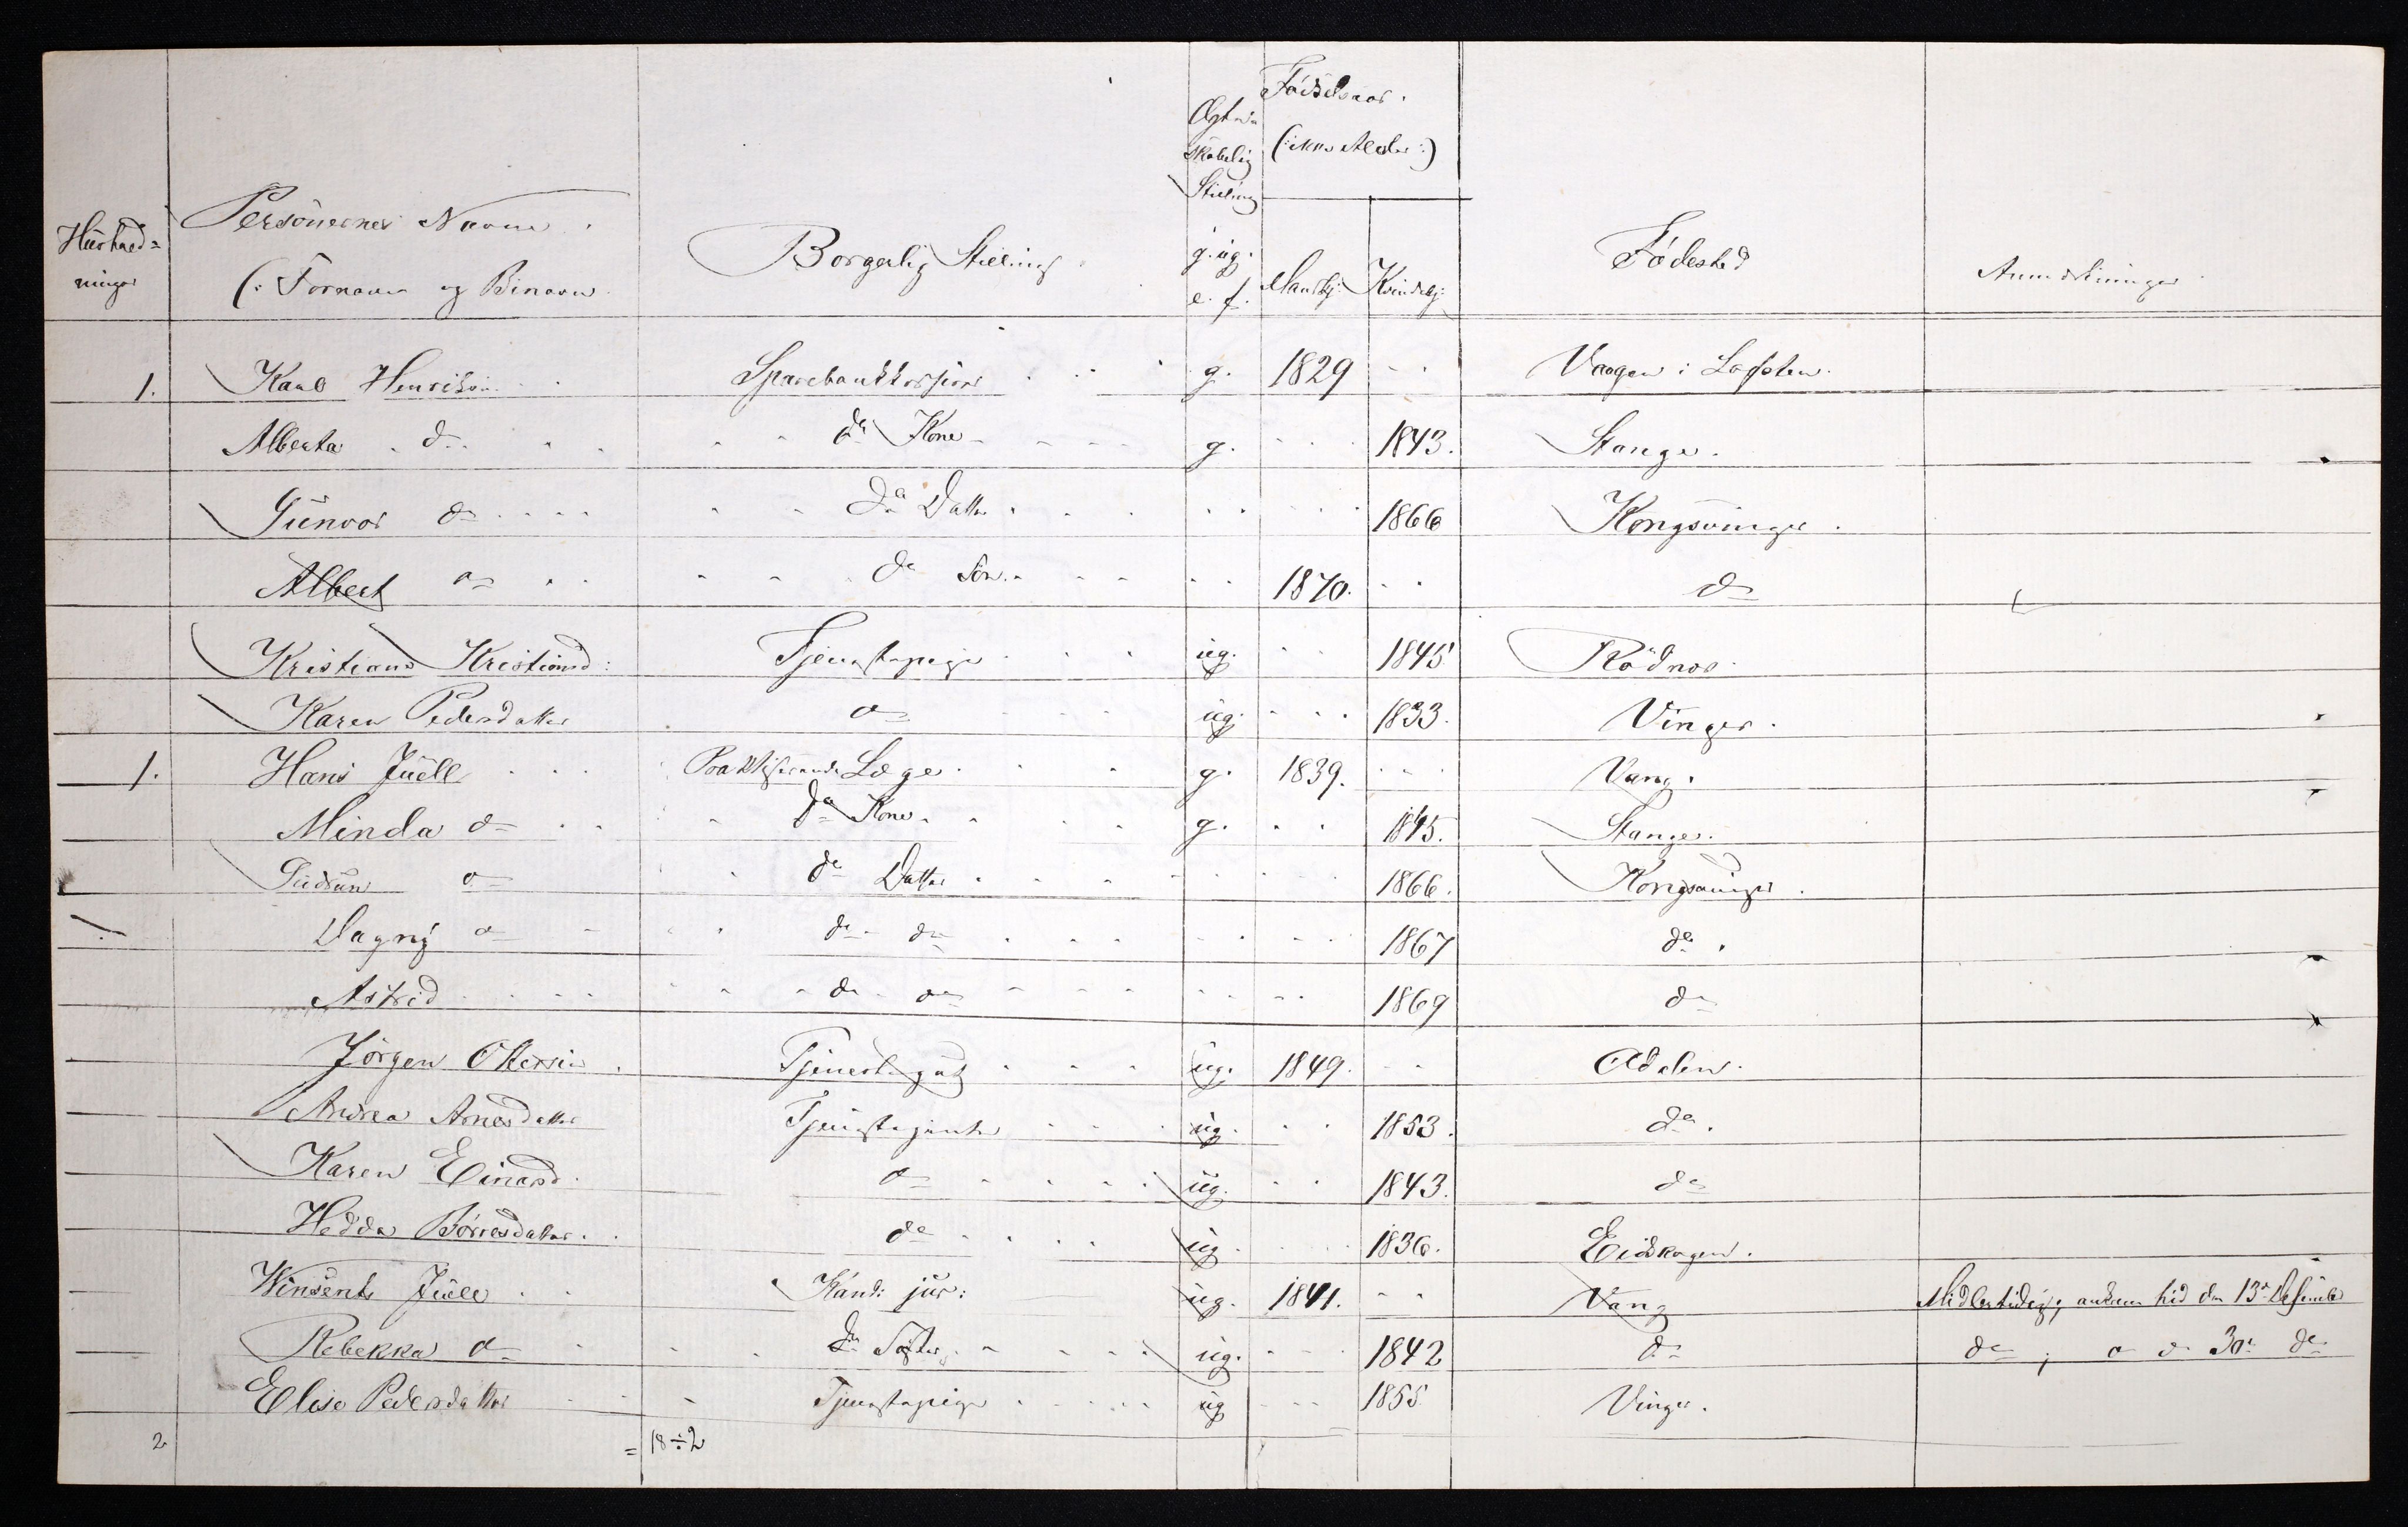 Fødselsaar.
(:ikke Alder:)
Ægte-
skabelig
Stilling
Personernes Navne.
Hushold-
ninger
(: Fornavn og Binavn
Borgerlig Stilling
g. ug.
e. f.
Mandkj: Kvindekj:
Fødested
Anmerkninger
1. Karl Henriksen Sparebankkasserer g. 1829 Vaagen i Lofoten.
Alberta do do Kone g. 1843. Stange.
Gunvor do do Datter 1866 Kongsvinger.
Albert do do Søn 1870. do
Kristiane Kristiansd: Tjenestepige ug. 1845 Rødnes
Karen Pedersdatter do ug. 1833. Vinger.
1. Hans Juell Praktiserende Læge g. 1839. Vang.
Minda do do Kone g. 1845. Stange.
Gudrun do do Datter 1866. Kongsvinger.
Dagny do do do 1867 do.
Astrid do do 1869 do
Jørgen Ottersen. Tjenestegut ug. 1849. Adalen.
Andrea Arnesdatter Tjenestejente ug. 1853. do.
Karen Einarsd. do ug. 1843. do
Hedda Børresdatter. do ug. 1836. Eidskogen.
Winsents Juell Kand: jur: ug. 1841. Vang Midlertidig; ankom hid den 13de Desember
Rebekka do do Søster ug. 1842 do do ; do do 30te do
Elise Pedersdatter Tjenestepige ug 1855 Vinger.
2 = 18÷2